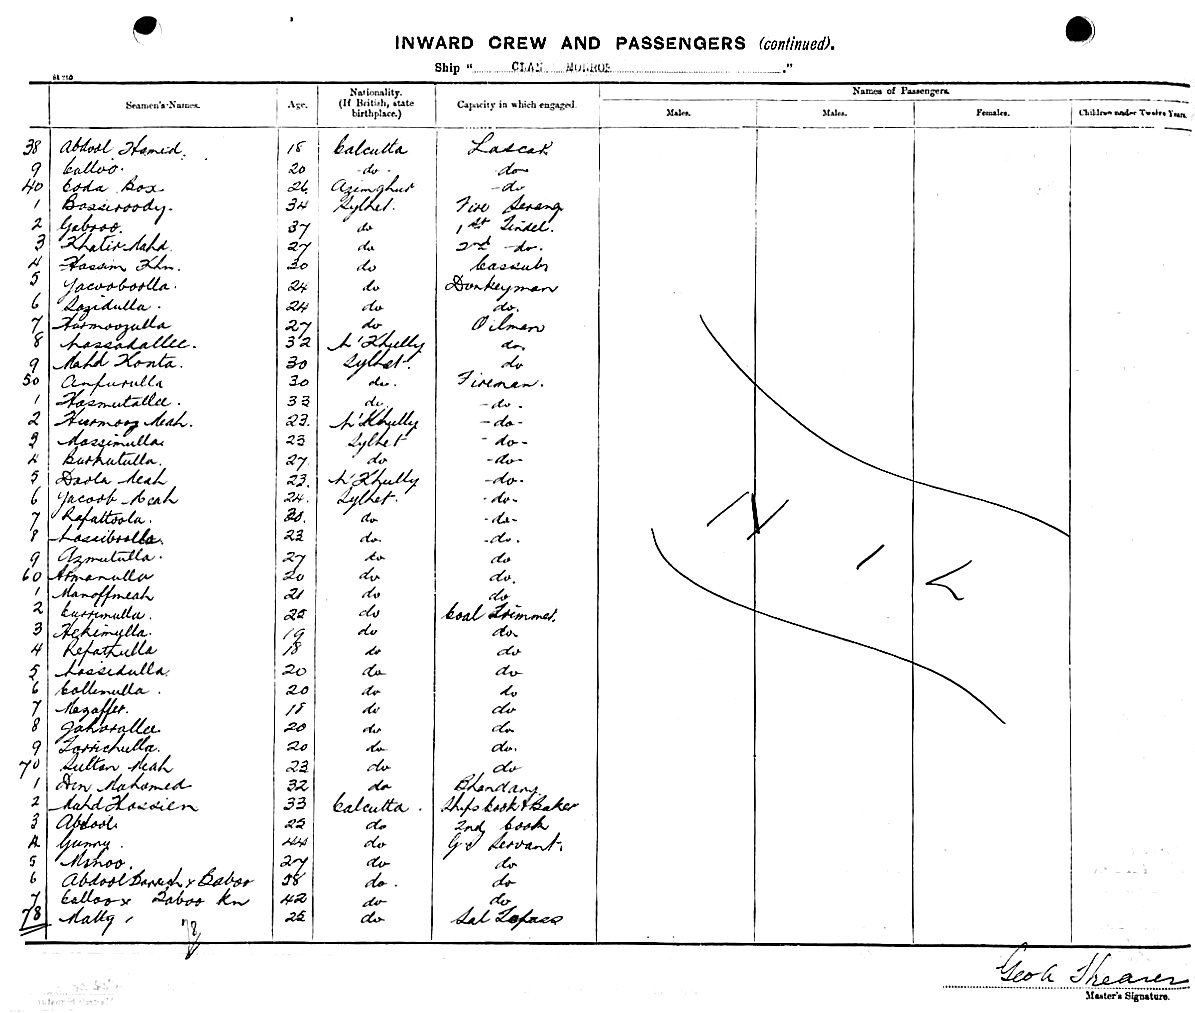 INWARD CREW AND PASSENGERS (continued).
Ship " CLAN MONROE ."
Seamen's Names. Age. Nationality. (If British, state birthplace.) Capacity in which engaged. Names of Passengers.
Males. Males. Females. Children under Twelve Years.
38 Abdool Hamid. 18 Calcutta Lascar
9 Calloo. 20 -do- -do-
40 Coda Box 26 Azimghur -do
1 Bassiroody. 34 Sylhet. Fire Serang
2 Gabroo. 37 do 1st Tindel.
3 Khatir Mahd. 27 do 2nd -do.
4 Hassim Khn. 30 do Cassub
5 Yacooboolla. 24 do Donkeyman
6 Sazidulla. 24 do do.
7 Hurmoozulla 27 do Oilman
8 32 N'Khully do.
9 Mahd Konta. 30 Sylhet. do
50 30 do. Fireman.
1 Hasmutallee. 33 do -do.
2 Hurmooz Meah. 23. N'Khully -do-
3 Massimulla 23 Sylhet -do-
4 Burkutulla. 27. do -do-
5 Daola Meah 23. N'Khully -do-
6 Yacoob Meah 24. Sylhet. -do-
7 Repattoola. 30. do -do-
8 23 do. -do.
9 Azmutulla. 27 do do
60 Armanulla 20 do do.
1 Manoffmeah 21 do do
2 Currimulla. 25 do Coal Trimmer.
3 Hekimulla. 19 do do.
4 Repathulla 18 do do
5 20 do do
6 Collimulla. 20 do do
7 Mozaffer. 18 do do
8 Jahorallee 20 do do
9 Torrichulla. 20 do do.
70 Sultan Meah 23 do do
1 Din Mahomed 32 do Bhandary
2 Mahd Hossien 33 Calcutta. Ships Cook & Baker
3 Abdool 25 do 2nd Cook
4 Gunny. 44 do Servant.
5 Minoo. 27 do do
6 Abdool x Baboo 38 do. do
7 Calloo x Kn 42 do do
78 25 do
78
Geo A Shearer
Master's Signature.